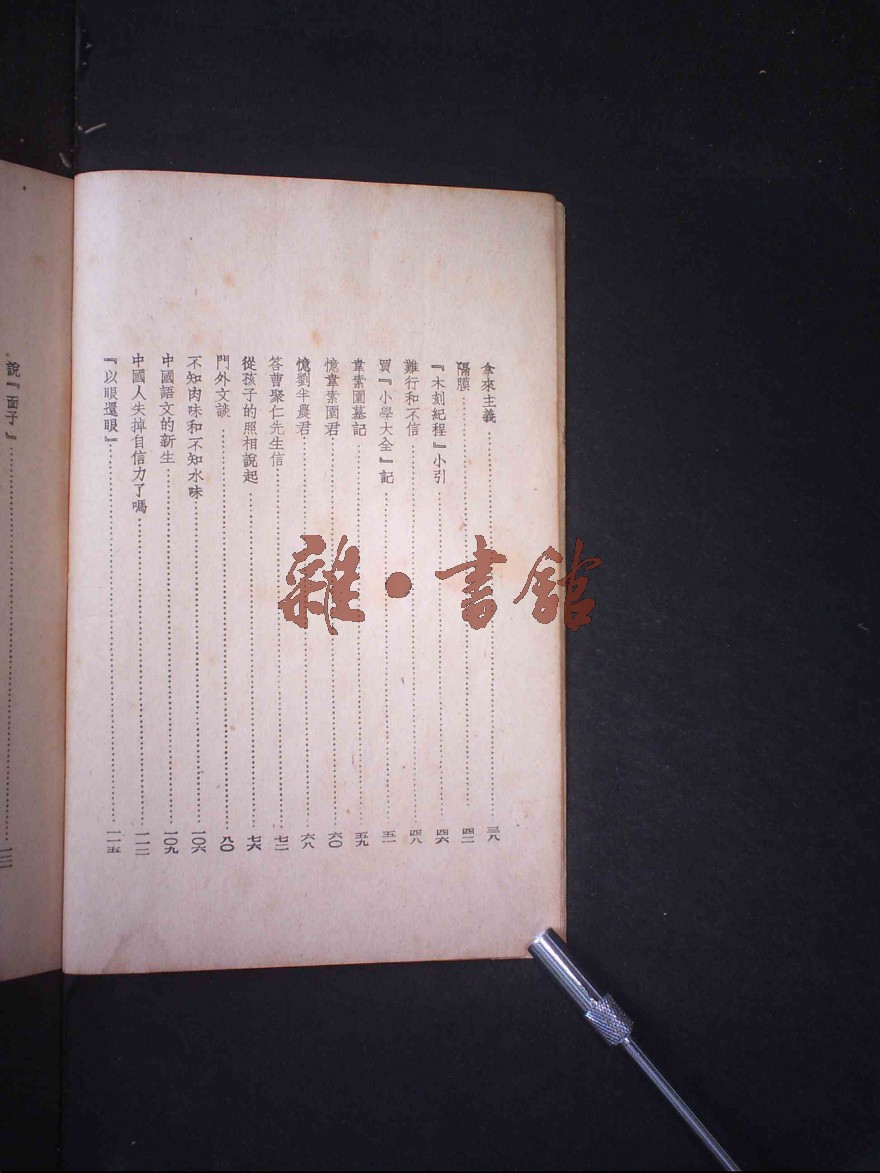 拿來主義……三八
隔膜……四二
『木刻紀程』小引……四六
難行和不信……四八
買『小學大全』記……五一
韋素園墓記……五九
憶韋素園君……六〇
憶劉半農君……六八
答曹聚仁先生信……七二
從孩子的照相說起……七六
門外文談……八〇
不知肉味和不知水味……一〇六
中國語文的新生……一〇九
中國人失掉自信力了嗎……一一二
『以眼還眼』……一一五
說『面子』……
雜•書館